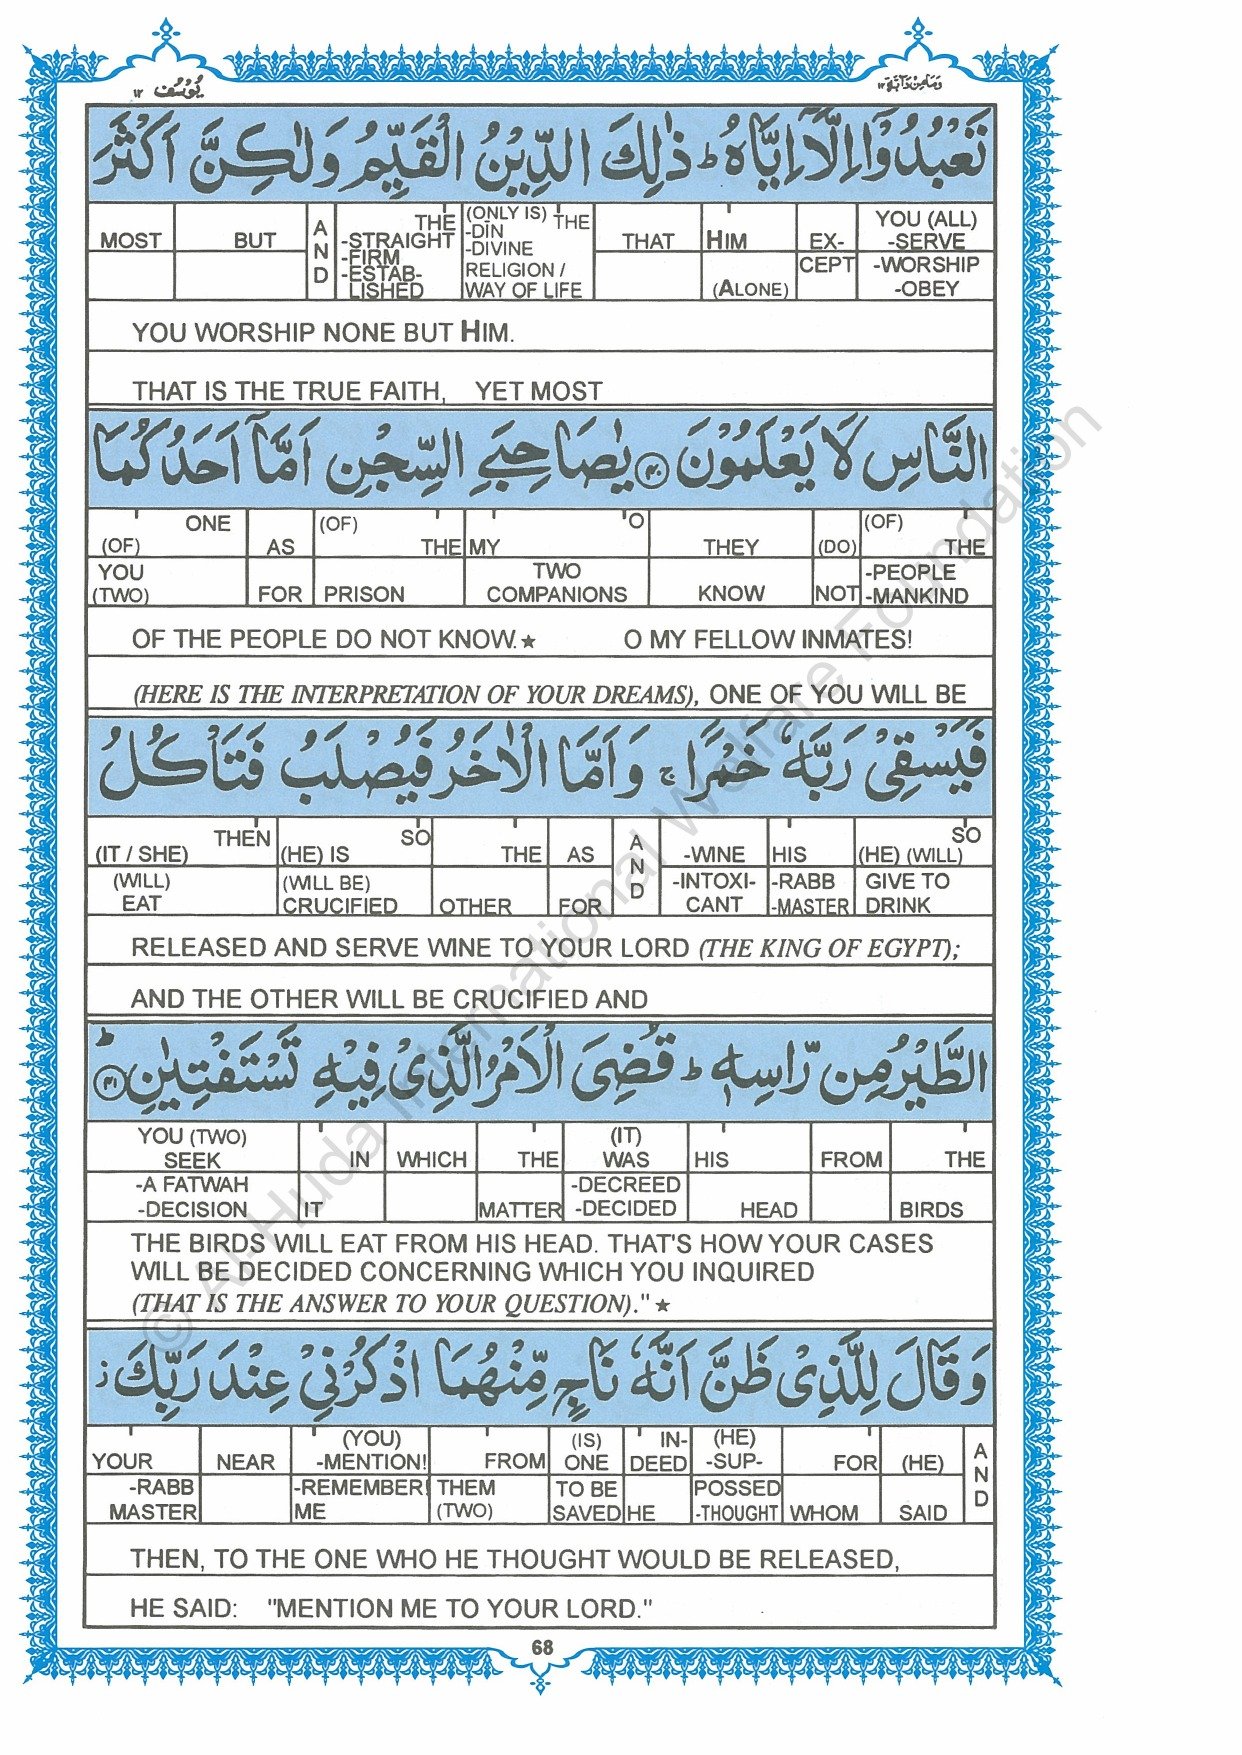 يُوسُف ١٢
وَمَا مِنْ دَآبَّة ١٢
تَعْبُدُوْٓا اِلَّآ اِيَّاهُ ؕ ذٰلِكَ الدِّيْنُ الْقَيِّمُ وَلٰكِنَّ اَكْثَرَ
MOST BUT AND THE -STRAIGHT -FIRM -ESTAB-LISHED (ONLY IS) THE -DĪN -DIVINE RELIGION / WAY OF LIFE THAT HIM (ALONE) EX-CEPT YOU (ALL) -SERVE -WORSHIP -OBEY
YOU WORSHIP NONE BUT HIM.
THAT IS THE TRUE FAITH, YET MOST
النَّاسِ لَا يَعْلَمُوْنَ ﴿۴۰﴾ يٰصَاحِبَيِ السِّجْنِ اَمَّآ اَحَدُكُمَا
ONE (OF) YOU (TWO) AS FOR (OF) THE PRISON MY O TWO COMPANIONS THEY KNOW (DO) NOT (OF) THE -PEOPLE -MANKIND
OF THE PEOPLE DO NOT KNOW.★ O MY FELLOW INMATES!
(HERE IS THE INTERPRETATION OF YOUR DREAMS), ONE OF YOU WILL BE
فَيَسْقِيْ رَبَّهٗ خَمْرًا ۚ وَاَمَّا الْاٰخَرُ فَيُصْلَبُ فَتَاْكُلُ
THEN (IT / SHE) (WILL) EAT SO (HE) IS (WILL BE) CRUCIFIED THE OTHER AS FOR AND -WINE -INTOXI-CANT HIS -RABB -MASTER SO (HE) (WILL) GIVE TO DRINK
RELEASED AND SERVE WINE TO YOUR LORD (THE KING OF EGYPT);
AND THE OTHER WILL BE CRUCIFIED AND
الطَّيْرُ مِنْ رَّاْسِهٖ ؕ قُضِيَ الْاَمْرُ الَّذِيْ فِيْهِ تَسْتَفْتِيٰنِ ﴿۴۱﴾ ؕ
YOU (TWO) SEEK -A FATWAH -DECISION IN IT WHICH THE MATTER (IT) WAS -DECREED -DECIDED HIS HEAD FROM THE BIRDS
THE BIRDS WILL EAT FROM HIS HEAD. THAT'S HOW YOUR CASES
WILL BE DECIDED CONCERNING WHICH YOU INQUIRED
(THAT IS THE ANSWER TO YOUR QUESTION)." ★
وَقَالَ لِلَّذِيْ ظَنَّ اَنَّهٗ نَاجٍ مِّنْهُمَا اذْكُرْنِيْ عِنْدَ رَبِّكَ ؗ
YOUR -RABB MASTER NEAR (YOU) -MENTION! -REMEMBER! ME FROM THEM (TWO) (IS) ONE TO BE SAVED IN-DEED HE (HE) -SUP-POSSED -THOUGHT FOR WHOM (HE) SAID AND
THEN, TO THE ONE WHO HE THOUGHT WOULD BE RELEASED,
HE SAID: "MENTION ME TO YOUR LORD."
68
© Al-Huda International Welfare Foundation